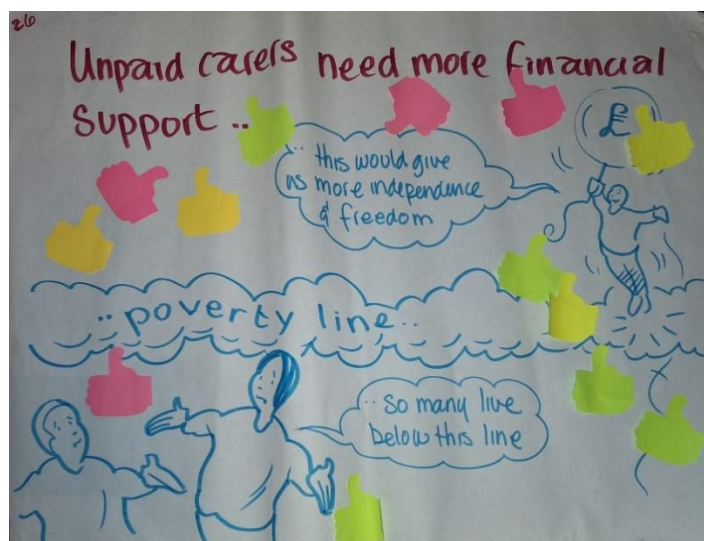 26
Unpaid carers need more financial
Support ..
.. this would give
us more independence
& freedom
£
.. poverty line ..
.. So many live
below this line